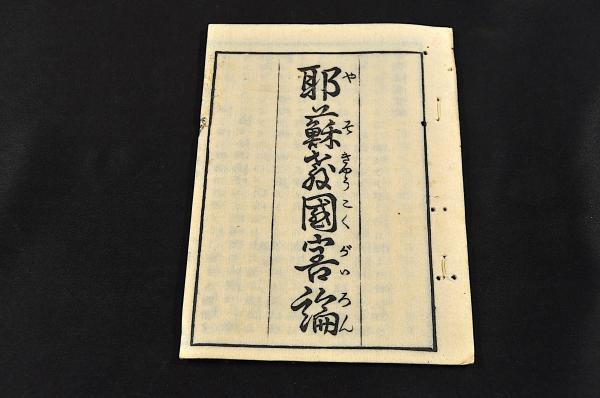 耶蘇教國害論
やそきやうこくがいろん